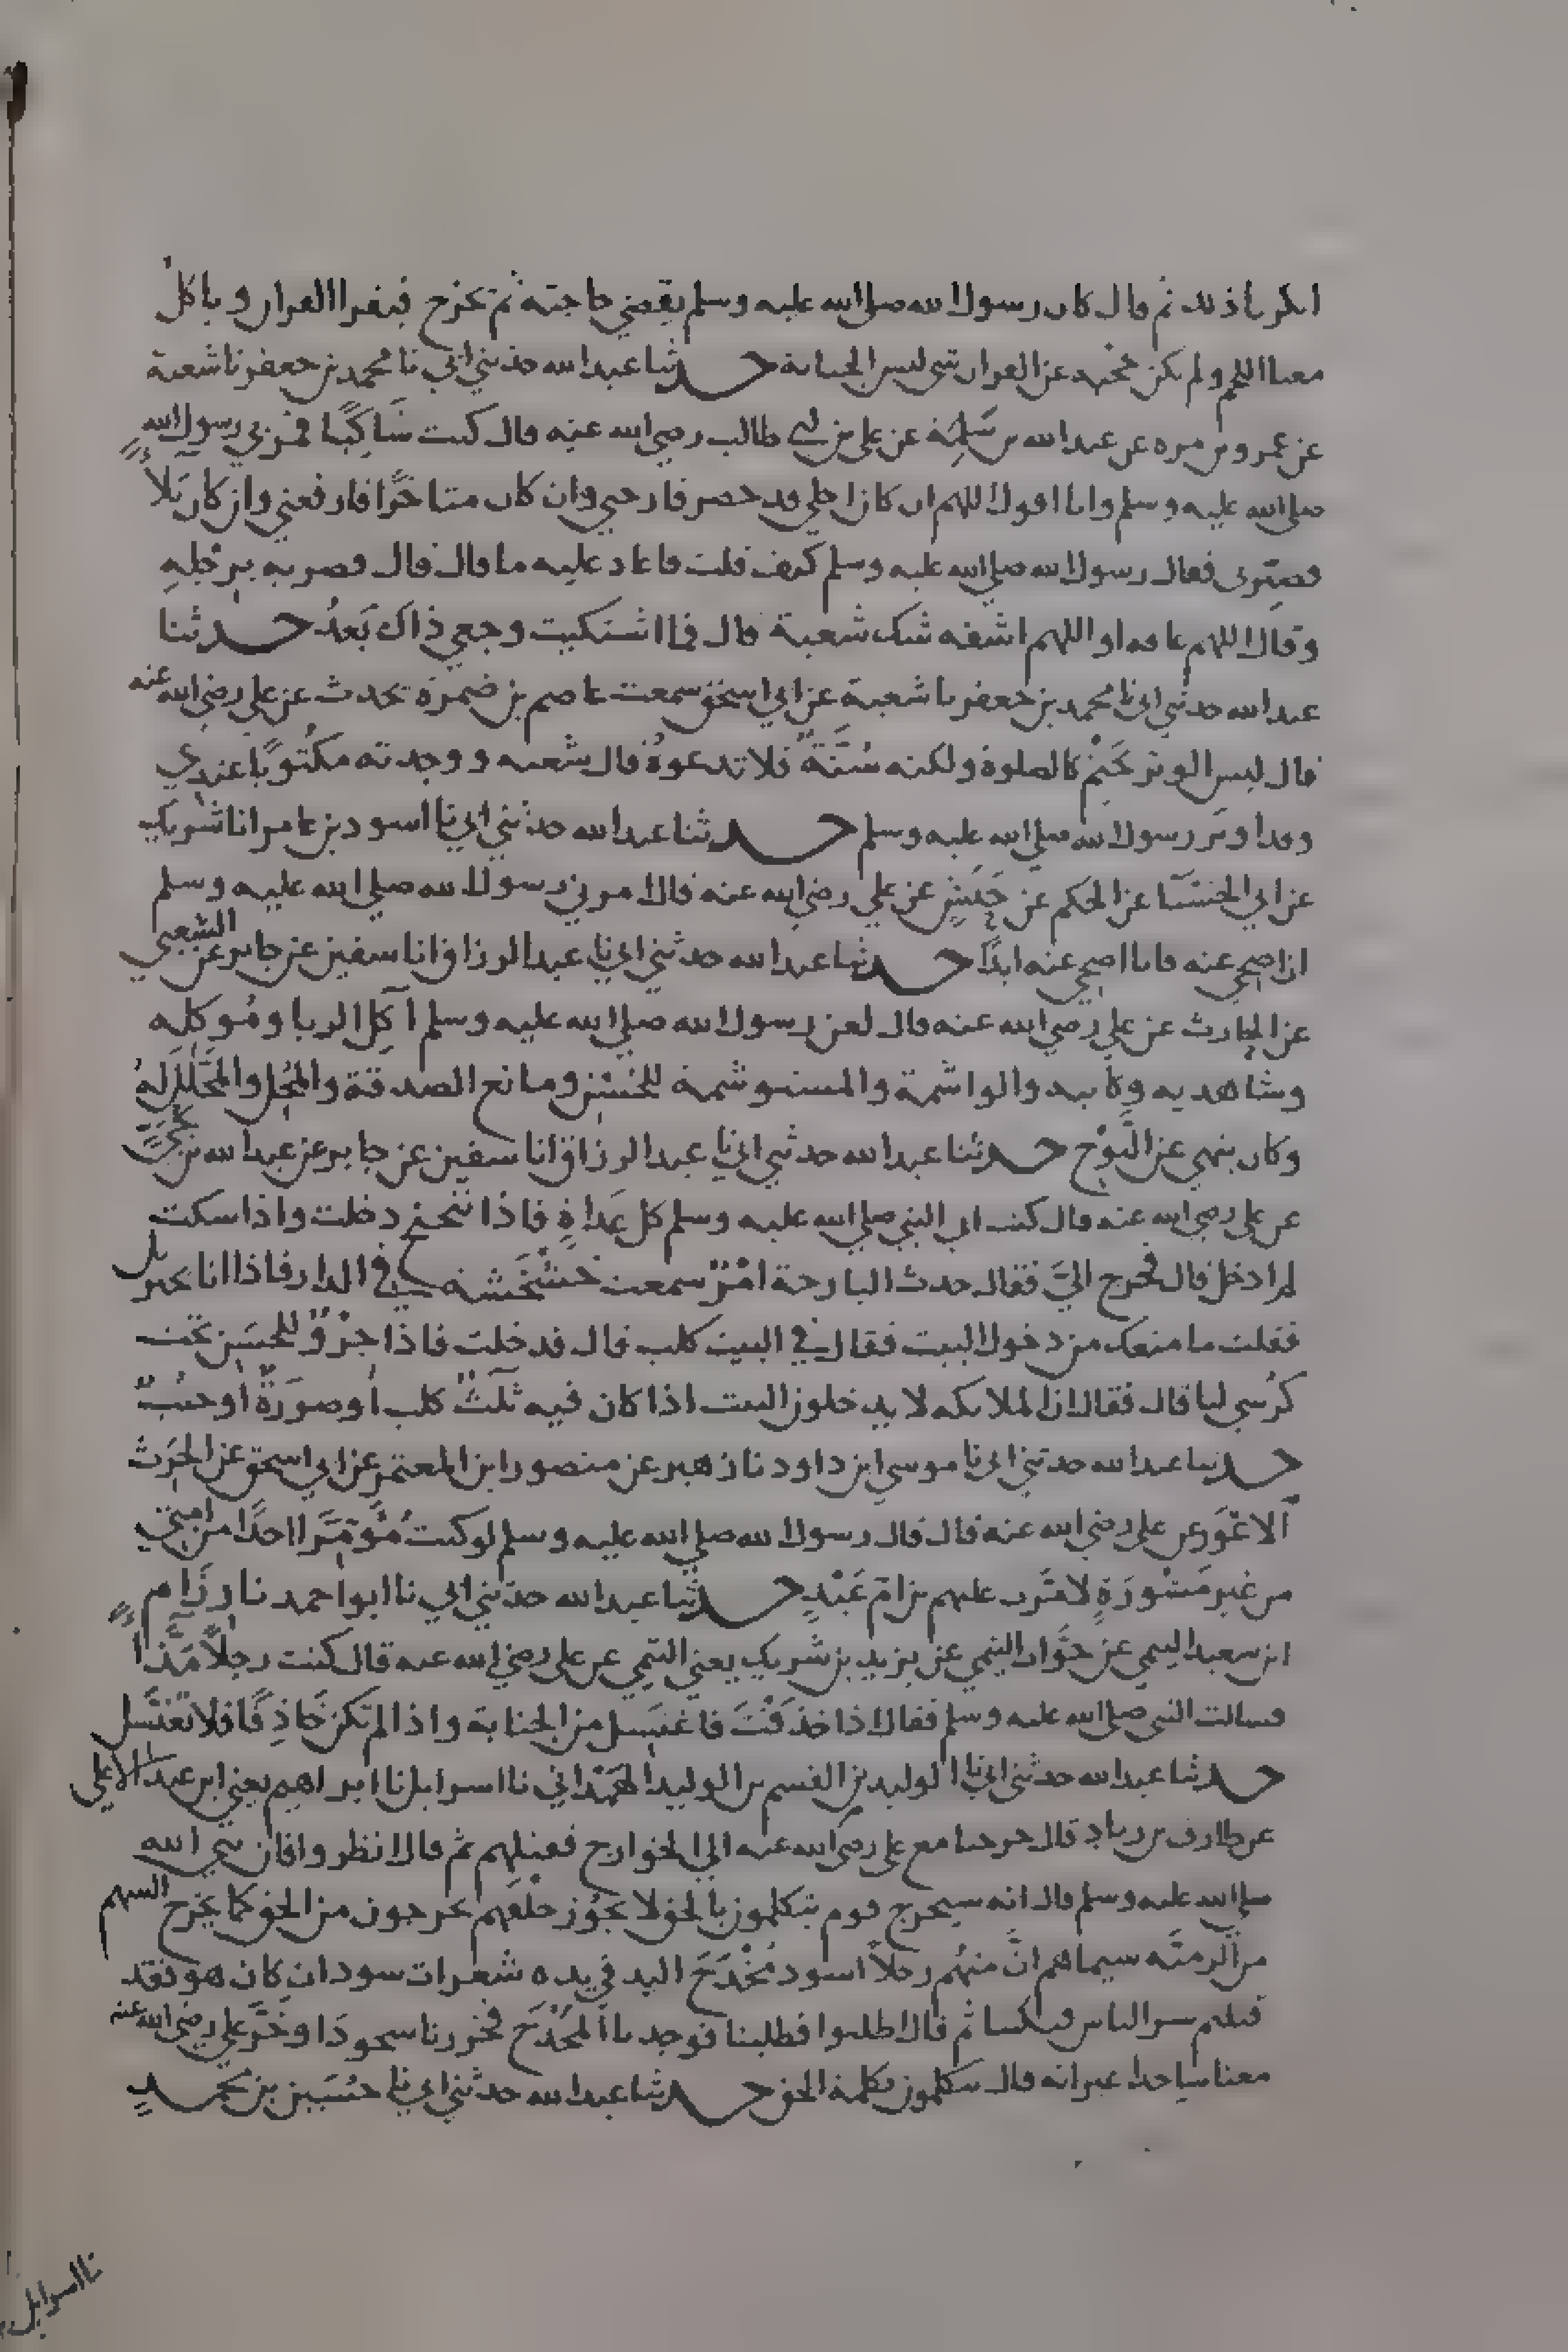 انكرنا ذلك ثم قال كان رسول الله صلى الله عليه وسلم يقضي حاجته ثم يخرج فيقرا القران وياكل
معنا اللحم ولم يكن يحجبه عن القران شي ليس الجنابة حدثنا عبد الله حدثني ابي نا محمد بن جعفر نا شعبة
عن عمرو بن مره عن عبد الله بن سَلِمَة عن علي بن ابي طالب رضي الله عنه قال كنت شَاكِيًا فمر بي رسول الله
صلى الله عليه وسلم وانا اقول اللهم ان كان اجلي قد حضر فارحني وان كان متاخرًا فارفعني وان كان بَلآءً
فصبّرني فقال رسول الله صلى الله عليه وسلم كيف قلت فاعاد عليه ما قال قال فضربه برجْلِهِ
وقال اللهم عافه او اللهم اشفه شك شعبة قال فما اشتكيت وجعي ذاك بَعدُ حدثنا
عبد الله حدثني ابي نا محمد بن جعفر نا شعبة عن ابي اسحق سمعت عاصم بن ضمرة يحدث عن علي رضي الله عنه
قال ليس الوتر بحَتْمٍ كالصلوة ولكنه سُنَّةٌ فلا تدعوهُ قال شعبه ووجدته مكتُوبًا عندي
وقد اوتر رسول الله صلى الله عليه وسلم حدثنا عبد الله حدثني ابي نا اسود بن عامر انا شريك
عن ابي الحسنَا عن الحكم عن حَنَشٍ عن علي رضي الله عنه قال امرني رسول الله صلى الله عليه وسلم
ان اضحي عنه فانا اضحي عنه ابدًا حدثنا عبد الله حدثني ابي نا عبد الرزاق انا سفين عن جابر عن الشعبي
عن الحارث عن علي رضي الله عنه قال لعن رسول الله صلى الله عليه وسلم آكِل الربا ومُوكِله
وشاهديه وكاتبه والواشمة والمستوشمة للحُسْن ومانع الصدقة والمُحِل والمحَلَّلَ لهُ
وكان ينهي عن النَّوْح حدثنا عبد الله حدثني ابي نا عبد الرزاق انا سفين عن جابر عن عبد الله بن نُجَيّ
عن علي رضي الله عنه قال كنت اتي النبي صلى الله عليه وسلم كل غَداةٍ فاذا تنحنح دخلت واذا سكت
لم ادخل قال فخرج اليَّ فقال حدث البارحة امْرٌ سمعت خَشْخَشة في الدار فاذا انا بجبريل
فقلت ما منعك من دخول البيت فقال في البيت كلب قال فدخلت فاذا جرْوٌ للحسَن تحت
كرْسي لنا قال فقال ان الملائكه لا يدخلون البيت اذا كان فيه ثَلٰثٌ كلب او صورَةٌ او جنُبٌ
حدثنا عبد الله حدثني ابي نا موسي ابن داود نا زهير عن منصور ابن المعتمر عن ابي اسحق عن الحَرث
الاعْوَر عن علي رضي الله عنه قال قال رسول الله صلى الله عليه وسلم لو كنت مُؤمِّرًا احدًا من امتي
من غير مَشُورَةٍ لامَّرت عليهم بن امّ عَبْدٍ حدثنا عبد الله حدثني ابي نا ابو احمد نا رزَام
ابن سعيد التيمي عن جَوَّاب التيمي عن يزيد بن شريك يعني التيمي عن علي رضي الله عنه قال كنت رجلًا مَذَّآءً
فسالت النبي صلى الله عليه وسلم فقال اذا خذَفْتَ فاغتَسِل من الجنابة واذا لم تكن خَاذِفًا فلا تغتسل
حدثنا عبد الله حدثني ابي نا الوليد بن القسم بن الوليد الهَمْداني نا اسرايل نا ابراهيم يعني ابن عبد الاعلي
عن طارق بن زياد قال خرجنا مع علي رضي الله عنه الي الخوارج فقتلهم ثم قال انظروا فان نبي الله
صلى الله عليه وسلم قال انه سيخرج قوم يتكلمون بالحق لا يجُوز حلْقهم يخرجون من الحق كما يخرج السهم
من الرميّه سيماهم انَّ منهُم رجلاً اسود مُخْدَجَ اليد في يده شعرات سود ان كان هو فقد
قتلتم شر الناس فبكينا ثم قال اطلبوا فطلبنا فوجدنا المُخْدَج فخررنا سجودًا وخَرَّ علي رضي الله عنه
معنا ساجدا غير انه قال يتكلمون بكلمة الحق حدثنا عبد الله حدثني ابي نا حسَين بن محمدٍ
نا اسرايل